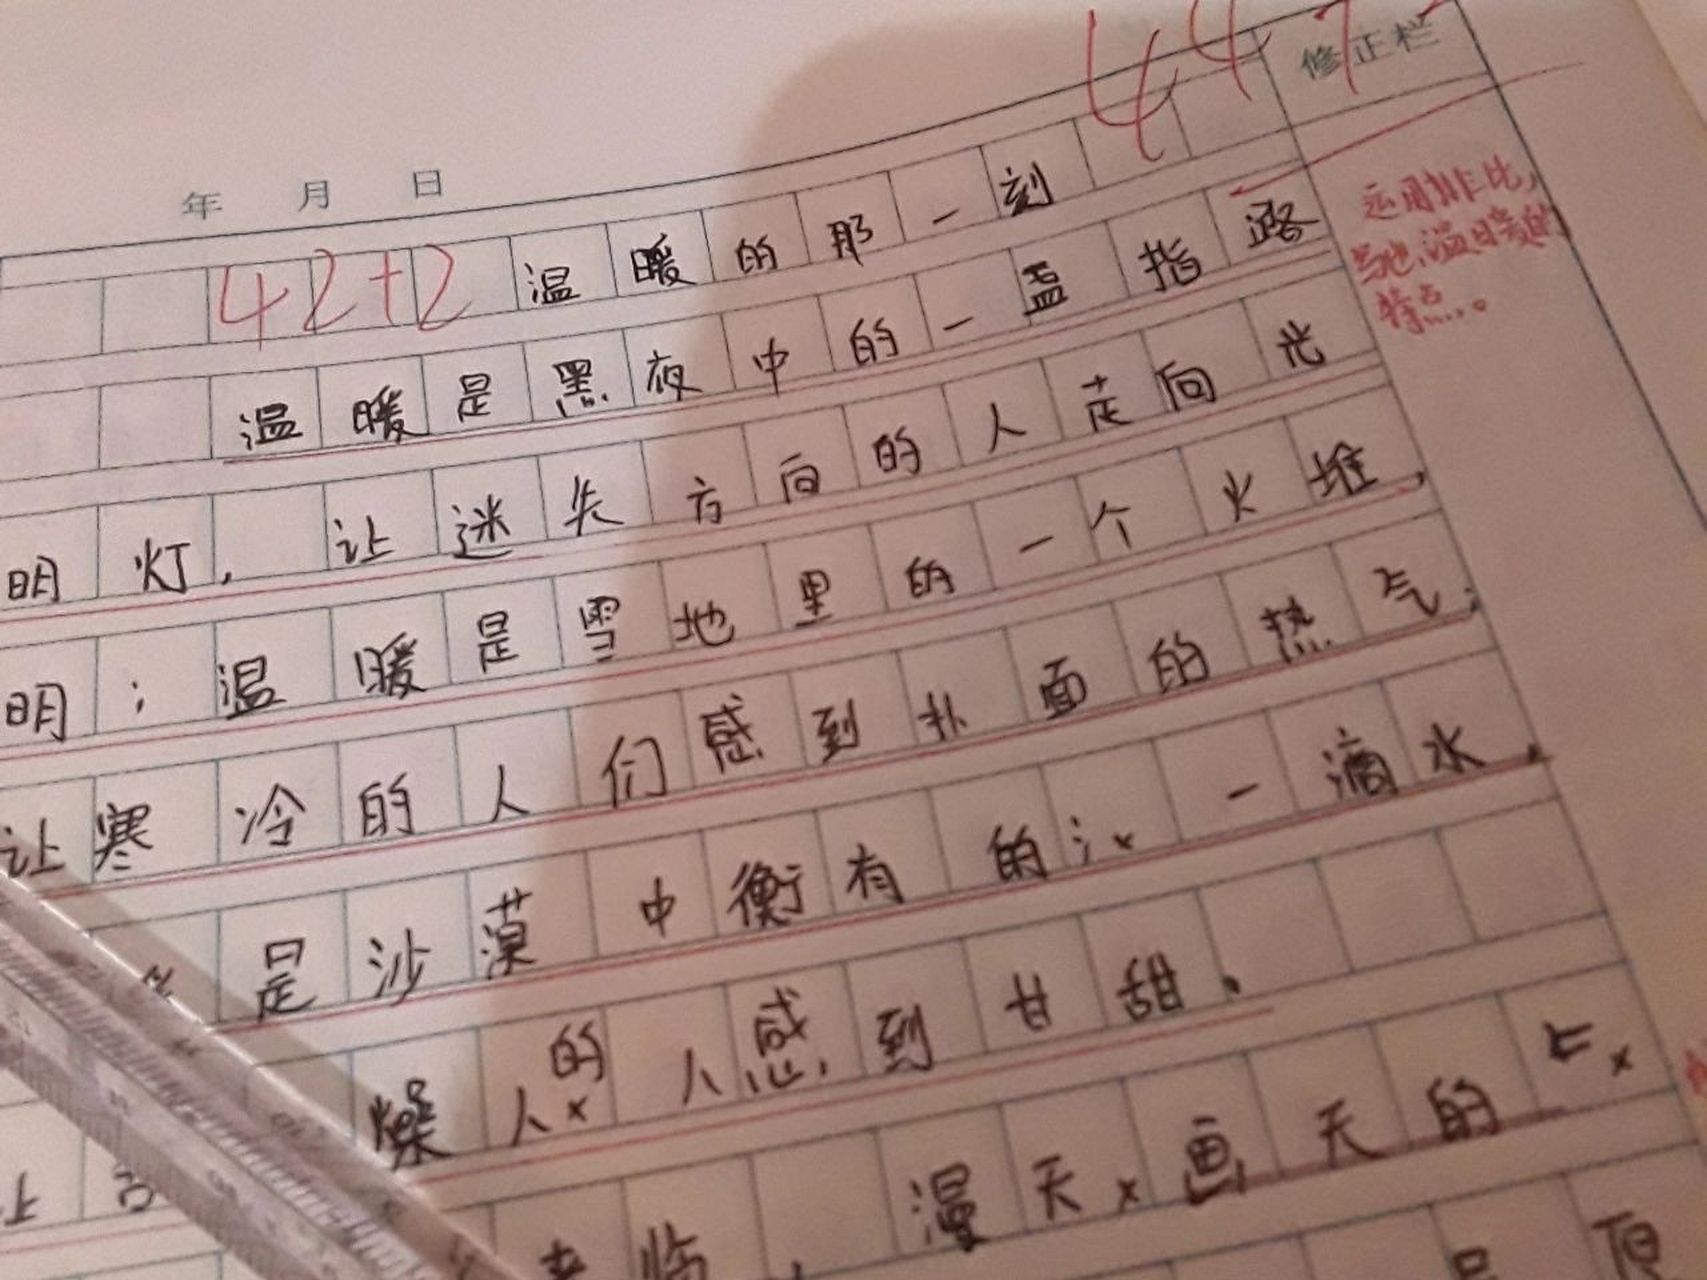 修正栏
年 月 日
42+2 温暖的那一刻
44
运用排比,
温暖的
特点...。
温暖是黑夜中的一盏指路
明灯,让迷失方向的人走向光
明;温暖是雪地里的一个火堆,
让寒冷的人们感到扑面的热气;
是沙漠中衡有的 一滴水,
燥人的人感到甘甜。
临,漫天画天的